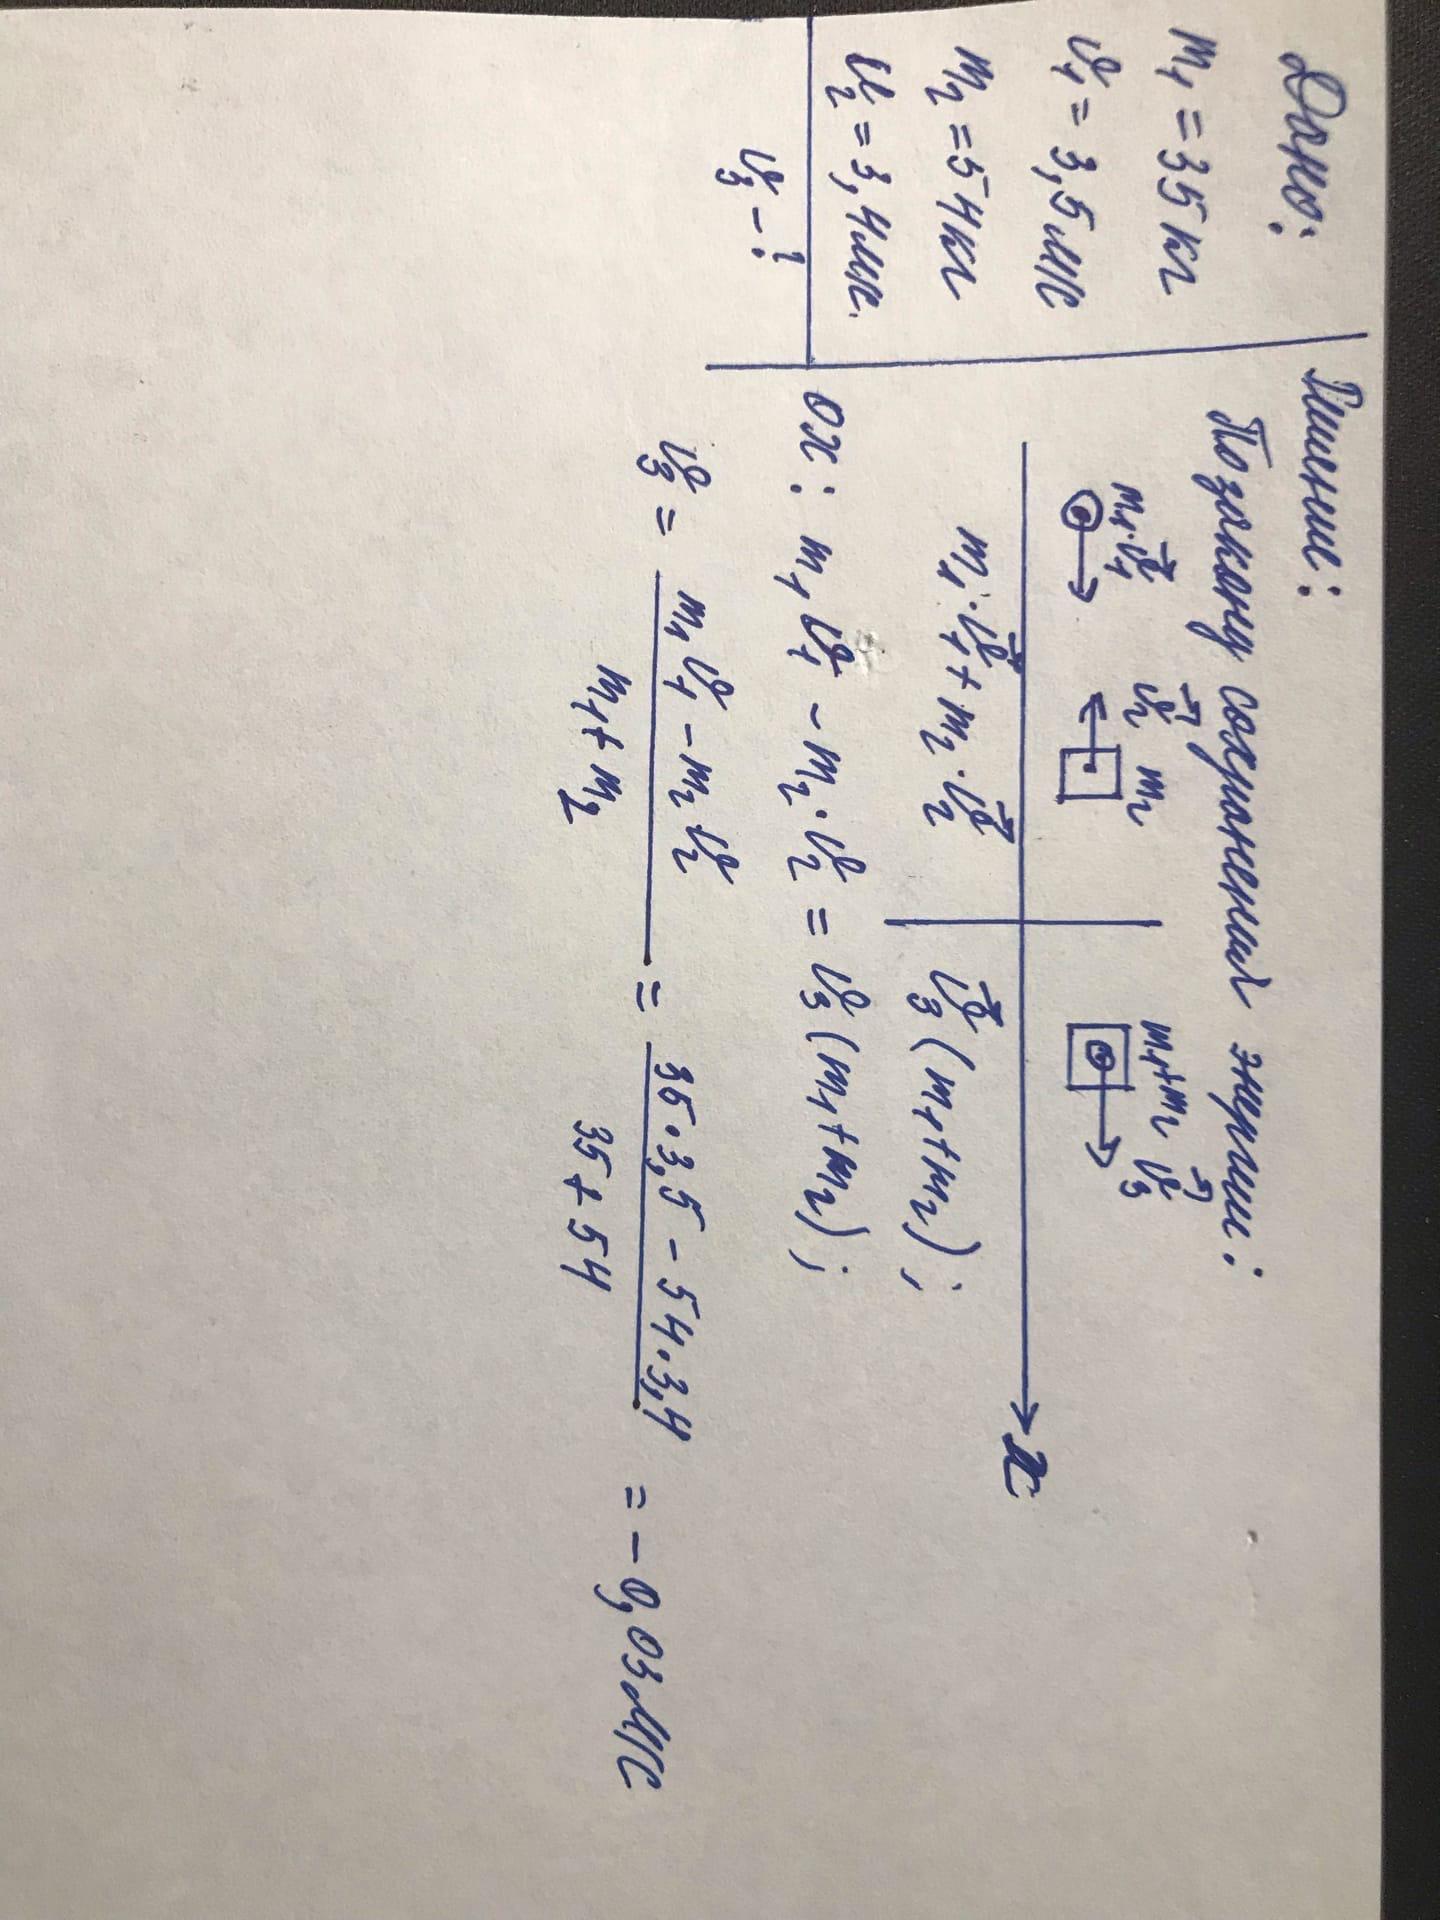 Дано:
m₁ = 35 кг
υ₁ = 3,5 м/с
m₂ = 54 кг
υ₂ = 3,4 м/с.
υ₃ - ?
Решение:
По закону сохранения энергии:
m₁·υ⃗₁ υ⃗₂ m₂ m₁+m₂ υ⃗₃
x
m₁·υ⃗₁ + m₂·υ⃗₂ υ⃗₃(m₁+m₂);
ox: m₁υ₁ - m₂·υ₂ = υ₃(m₁+m₂);
υ₃ = (m₁υ₁ - m₂υ₂)/(m₁+m₂) = (35·3,5 - 54·3,4)/(35+54) = -0,03 м/с